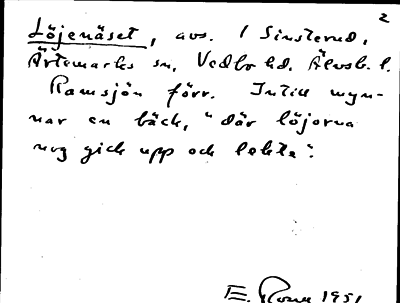 2
Löjenäset, avs. / Sinsterud,
Ärtemarks sn, Vedbo hd. Älvsb. l.
Ramsjön förr. Intill myn-
nar en bäck, "där löjorna
nog gick upp och lekte".
E. 1951